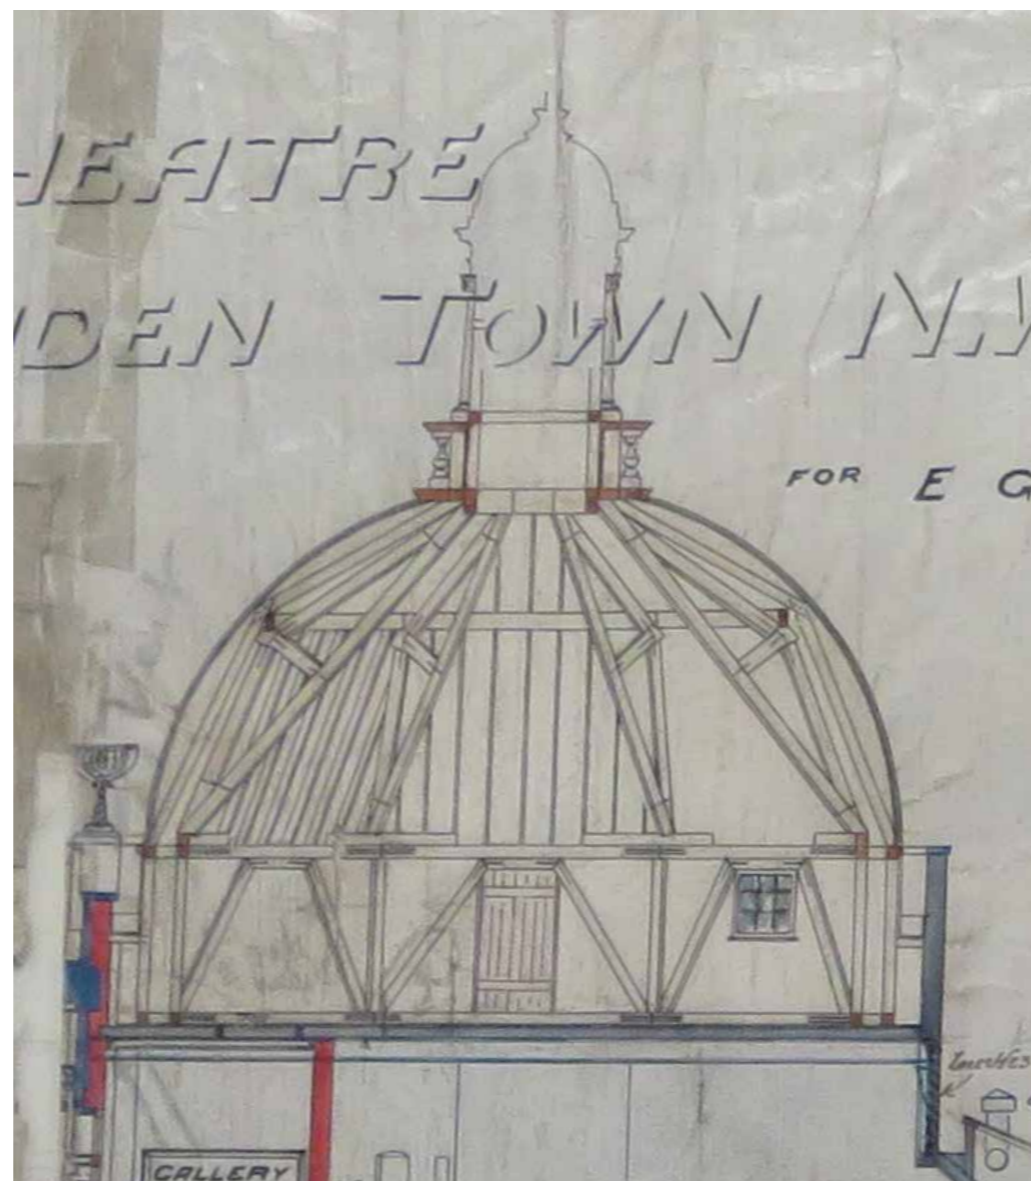 HEATRE
DEN TOWN N.W
FOR E G
GALLERY